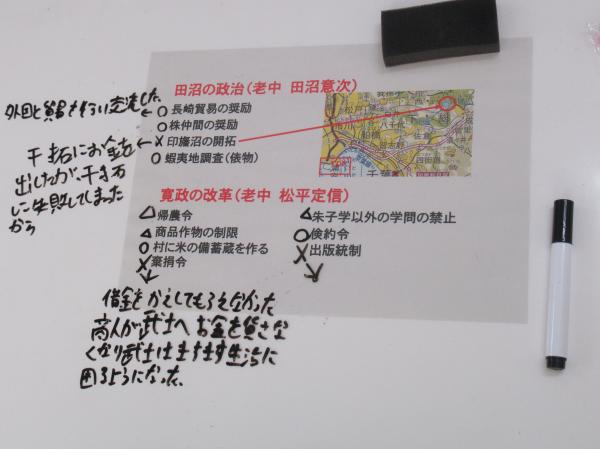 田沼の政治(老中 田沼意次)
○ 長崎貿易の奨励
○ 株仲間の奨励
× 印旛沼の開拓
○ 蝦夷地調査(俵物)
外国と貿易を行い交流した。
干拓にお金を
出したが、干き
に失敗してしまった
から
寛政の改革(老中 松平定信)
△ 帰農令
△ 商品作物の制限
○ 村に米の備蓄蔵を作る
× 棄捐令
△ 朱子学以外の学問の禁止
○ 倹約令
× 出版統制
借金をかえしてもらえなかった
商人が武士へお金を貸さな
くなり武士はますます生活に
困るようになった。
八千代
船橋
習志野
佐倉
四街道
千葉